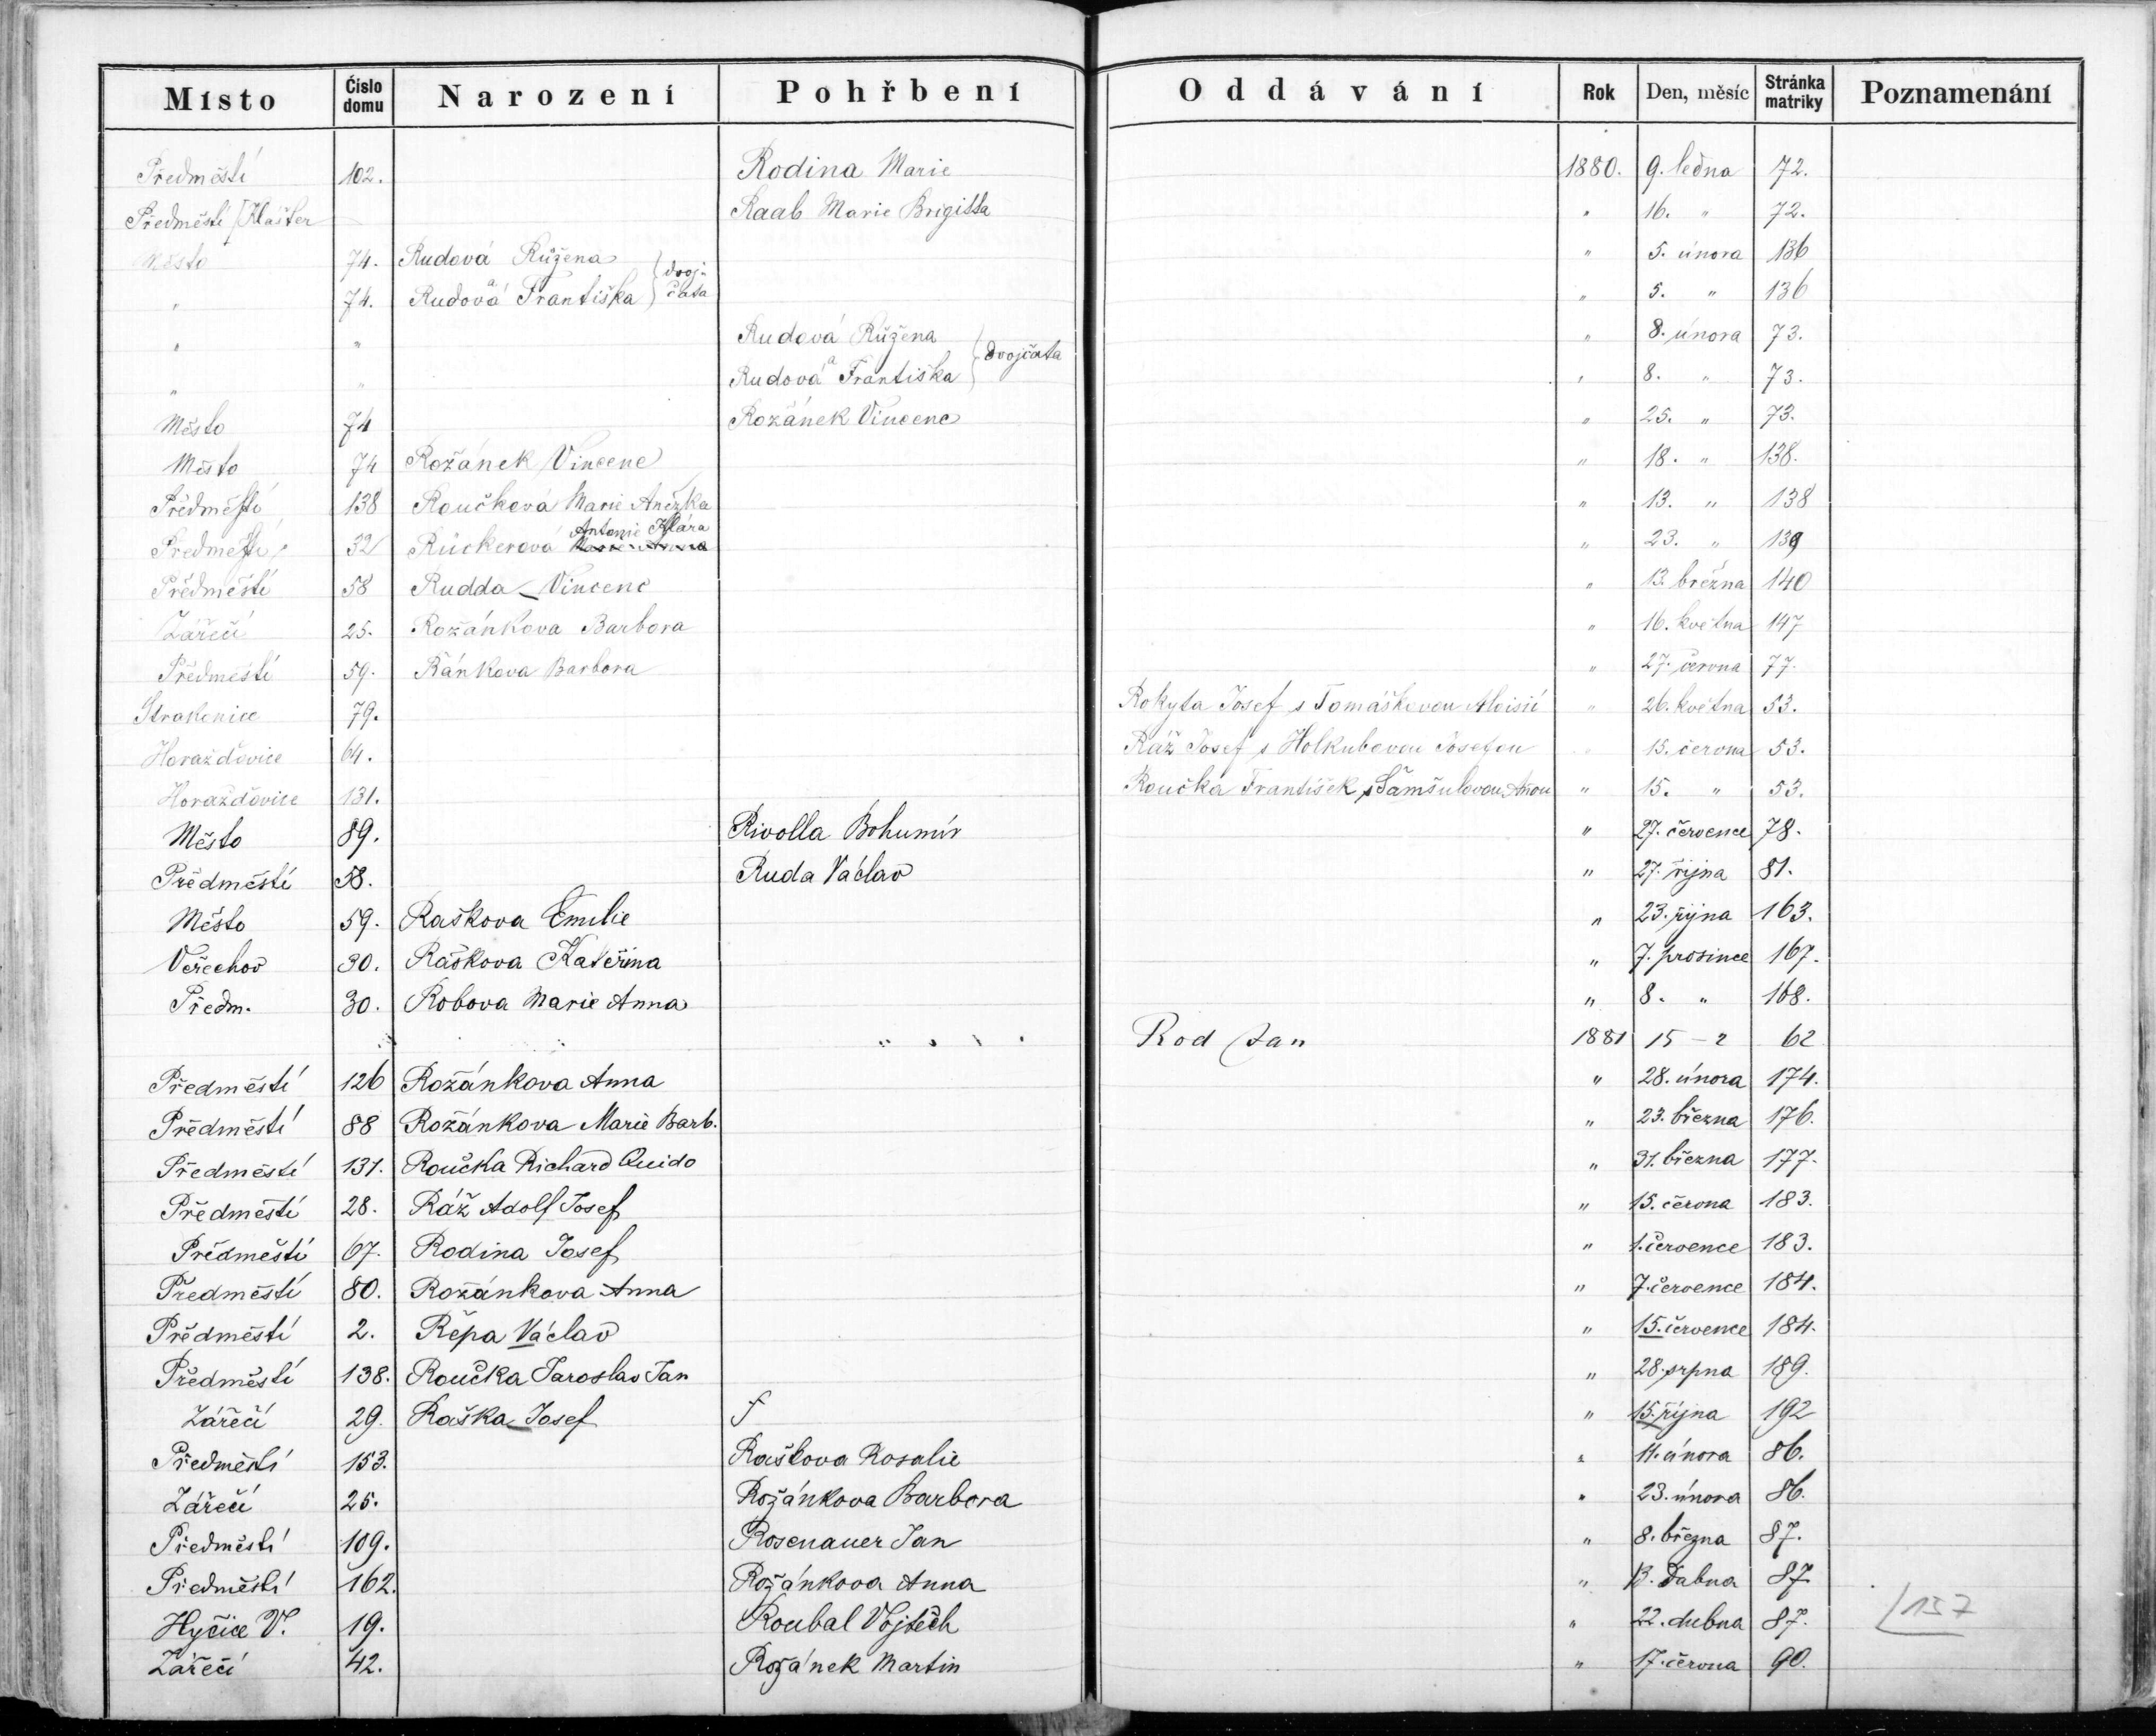 Místo Číslo domu Narození Pohřbení Oddávání Rok Den, měsíc Stránka matriky Poznamenání
Předměstí 102. Rodina Marie 1880. 9. ledna 72.
Předměstí Klášter Raab Marie Brigitta " 16. " 72.
Město 74. Rudová Růžena } dvoj- " 5. února 136
" 74. Rudová a Františka } čata " 5. " 136
" " Rudová Růžena } dvojčata " 8. února 73.
" " Rudová a Františka } " 8. " 73.
Město 74 Rožánek Vincenc " 25. " 73.
Město 74 Rožánek Vincenc " 18. " 138.
Předměstí 138 Roučková Marie Anežka " 13. " 138
Předměstí 32 Rückerová Antonie Klára " 23. " 139
Předměstí 58 Rudda Vincenc " 13. března 140
Zářečí 25. Rožánkova Barbora " 16. května 147
Předměstí 59. Ránkova Barbora " 27. června 77.
Strakonice 79. Rokyta Josef s Tomáškovou Aloisií " 26. května 53.
Horažďovice 64. Ráž Josef s Holkubovou Josefou " 15. června 53.
Horažďovice 131. Roučka František s Šamšulovou Anou " 15. " 53.
Město 89. Rivolla Bohumír " 27. července 78.
Předměstí 58. Ruda Václav " 27. října 81.
Město 59. Raškova Emilie " 23. října 163.
Veřechov 30. Raškova Kateřina " 7. prosince 167.
Předm. 30. Robova Marie Anna " 8. " 168.
Rod Jan 1881 15 – 2 62
Předměstí 126 Rožánkova Anna " 28. února 174.
Předměstí 88 Rožánkova Marie Barb. " 23. března 176.
Předměstí 131. Roučka Richard Quido " 31. března 177.
Předměstí 28. Ráž Adolf Josef " 15. června 183.
Předměstí 67. Rodina Josef " 1. července 183.
Předměstí 80. Rožánkova Anna " 7. července 184.
Předměstí 2. Řepa Václav " 15. července 184.
Předměstí 138. Roučka Jaroslav Jan " 28. srpna 189.
Zářečí 29. Raška Josef " 15. října 192
Předměstí 153. Raškova Rosalie " 11. února 86.
Zářečí 25. Rožánkova Barbora " 23. února 86.
Předměstí 109. Rosenauer Jan " 8. března 87.
Předměstí 162. Rožánkova Anna " 13. dubna 87
Hyčice V. 19. Roubal Vojtěch " 22. dubna 87. 157
Zářečí 42. Rožánek Martin " 17. června 90.